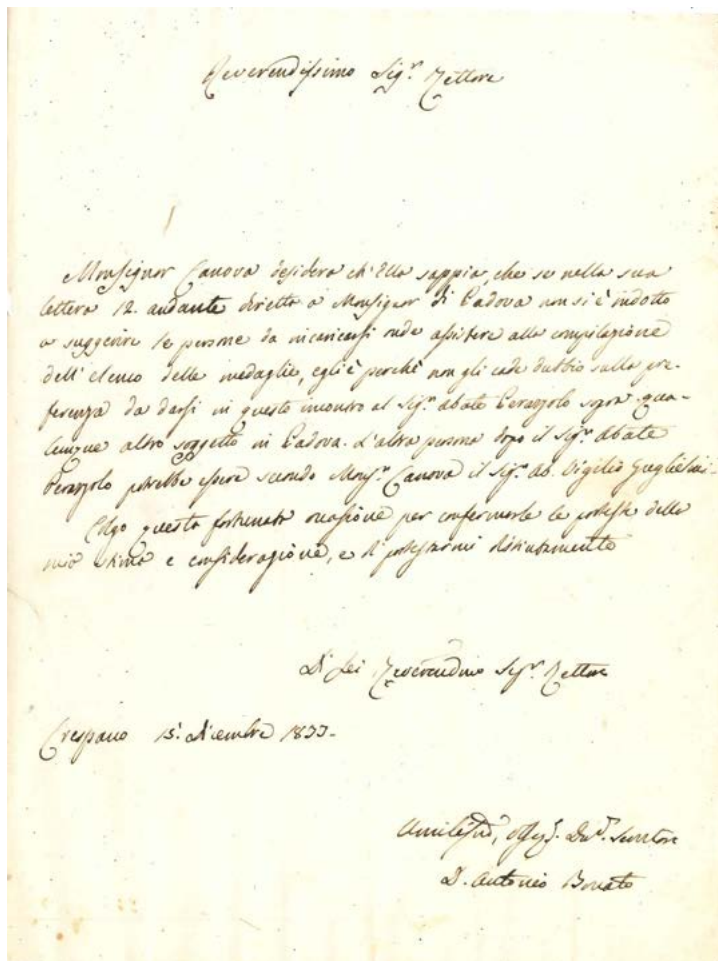 Reverendissimo Sig.r Rettore
Monsignor Canova desidera ch'Ella sappia, che se nella sua
lettera 12. andante diretta a Monsignor di Padova non si è indotto
a suggerire le persone da incaricarsi onde assistere alla compilazione
dell'elenco delle medaglie, egli è perchè non gli cade dubbio sulla pre-
ferenza da darsi in questo incontro al Sig.r Abate sopra qua-
lunque altro soggetto in Padova. L'altra persona dopo il Sig.r Abate
potrebbe essere secondo Mons.r Canova il Sig.r Ab. Vigilio
Colgo questa fortunata occasione per confermarle le proteste della
mia stima e considerazione, e di protestarmi distintamente
Di Lei Reverendmo Sig.r Rettore
Crespano 15. Dicembre 1833.
Servitore
D. Antonio Bonato